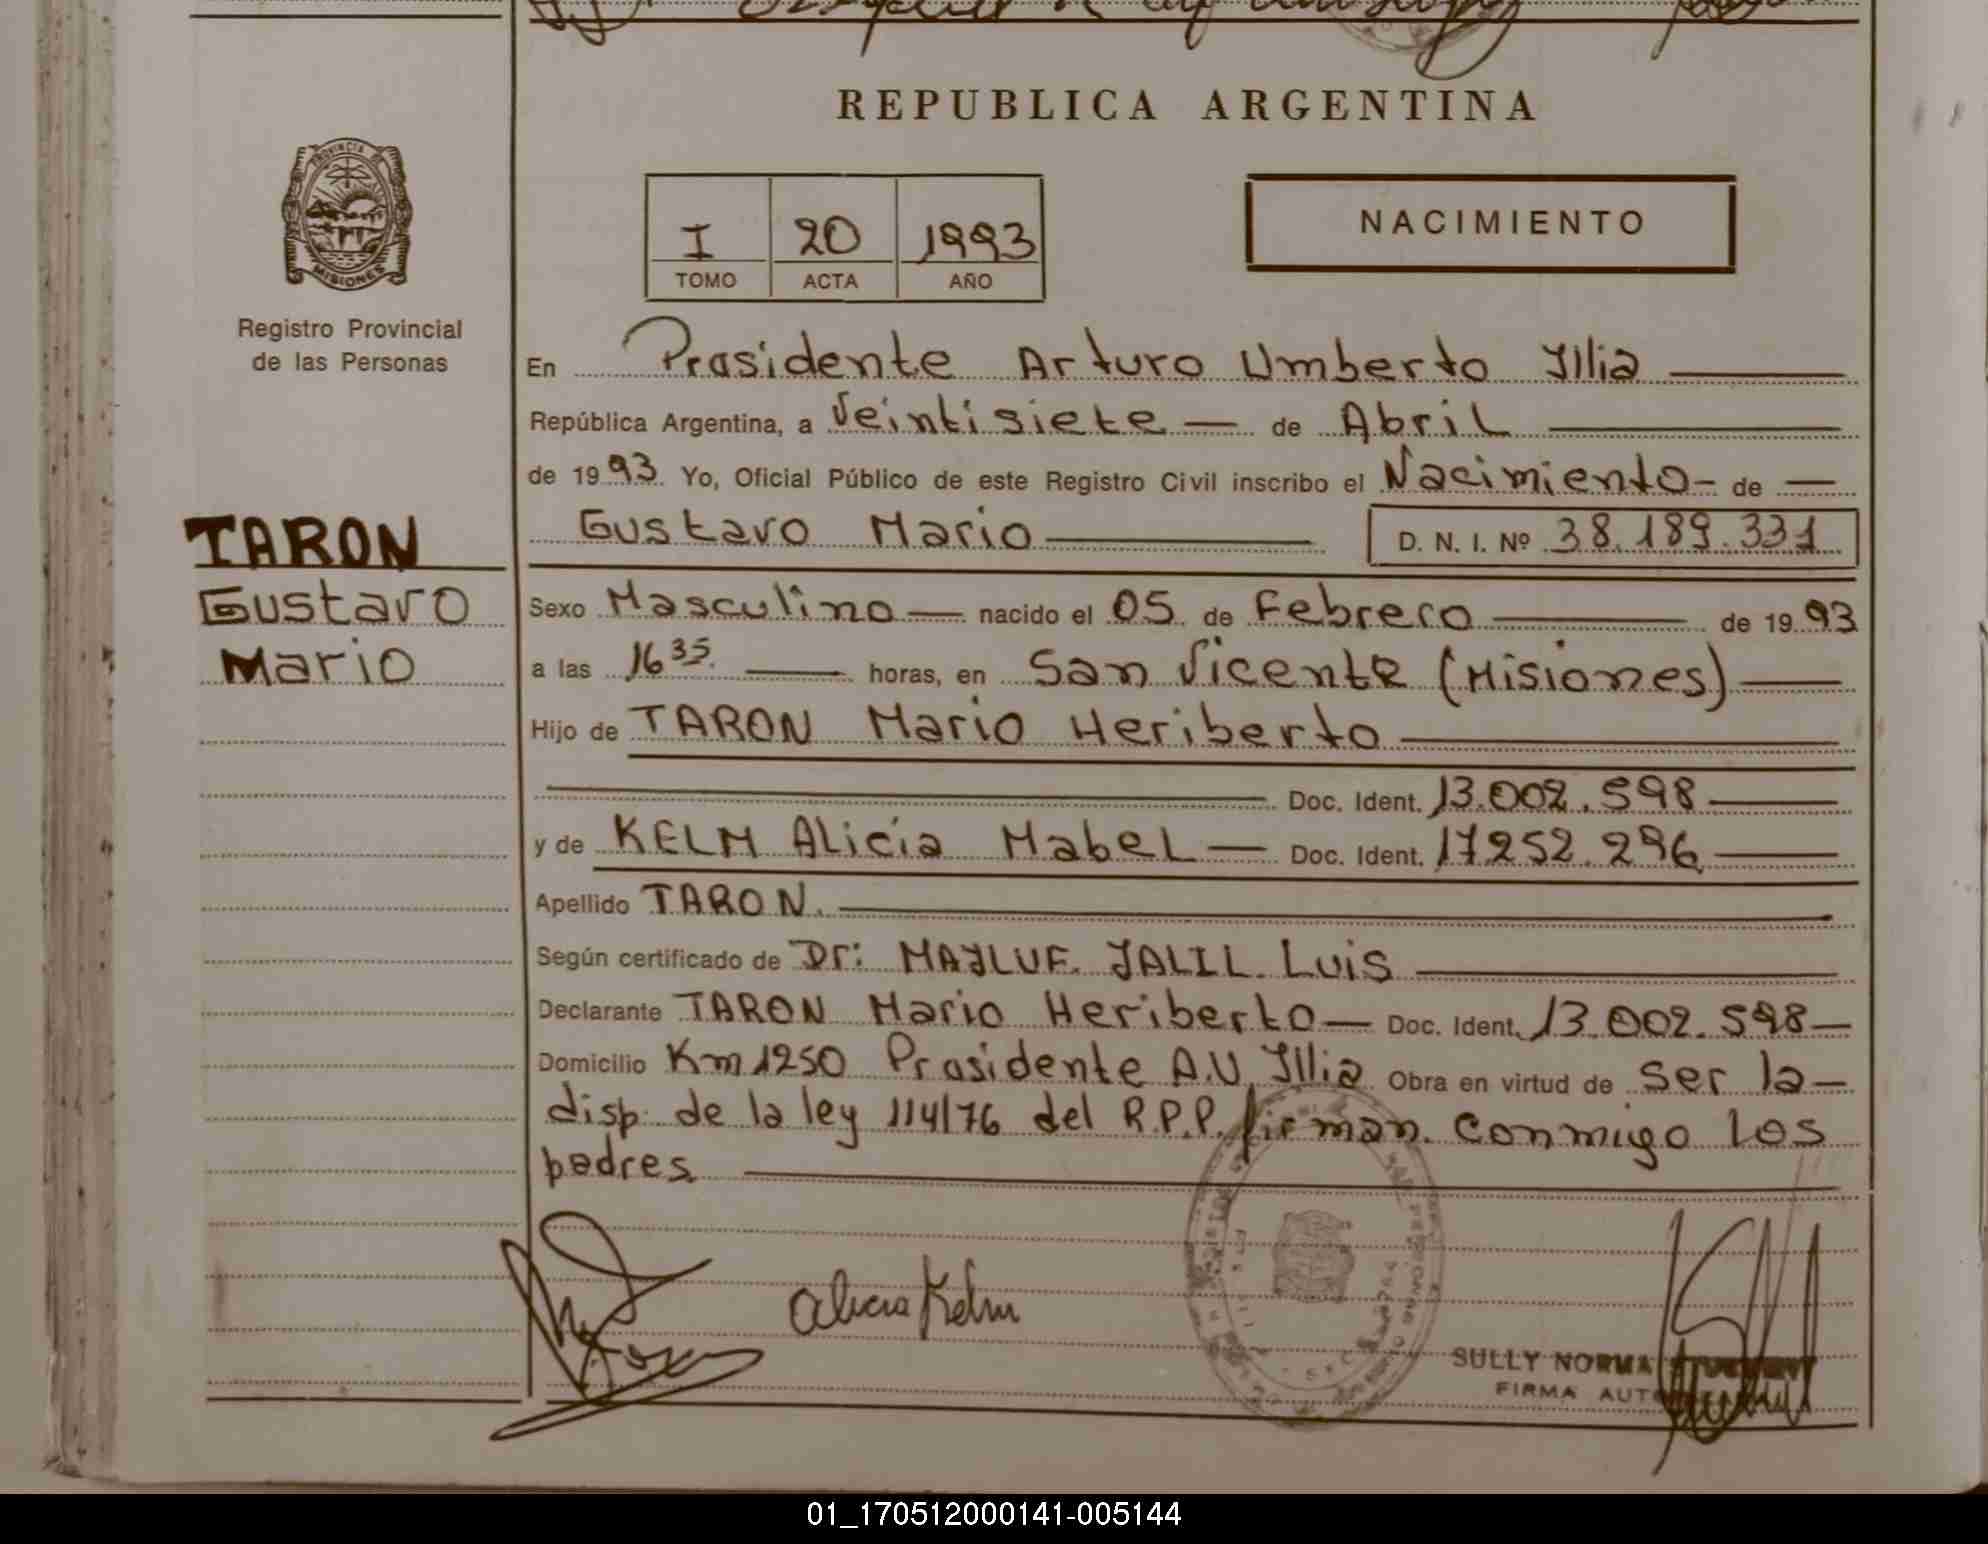 REPUBLICA ARGENTINA
PROVINCIA DE
MISIONES
Registro Provincial
de las Personas
I 20 1993
TOMO ACTA AÑO
NACIMIENTO
TARON
Gustavo
Mario
En Presidente Arturo Umberto Illia
República Argentina, a Veintisiete de Abril
de 1993 Yo, Oficial Público de este Registro Civil inscribo el Nacimiento de
Gustavo Mario D. N. I. Nº 38.189.331
Sexo Masculino nacido el 05 de Febrero de 1993
a las 16 35. horas, en San Vicente (Misiones)
Hijo de TARON Mario Heriberto
Doc. Ident. 13.002.598
y de KELM Alicia Mabel Doc. Ident. 17.252.296
Apellido TARON.
Según certificado de Dr: MAJLUF. JALIL. Luis
Declarante TARON Mario Heriberto Doc. Ident. 13.002.598
Domicilio Km 1250 Presidente A.U. Illia Obra en virtud de ser la
disp. de la ley 114/76 del R.P.P. firman conmigo los
padres
Alicia Kelm
SULLY NORMA
FIRMA
01_170512000141-005144